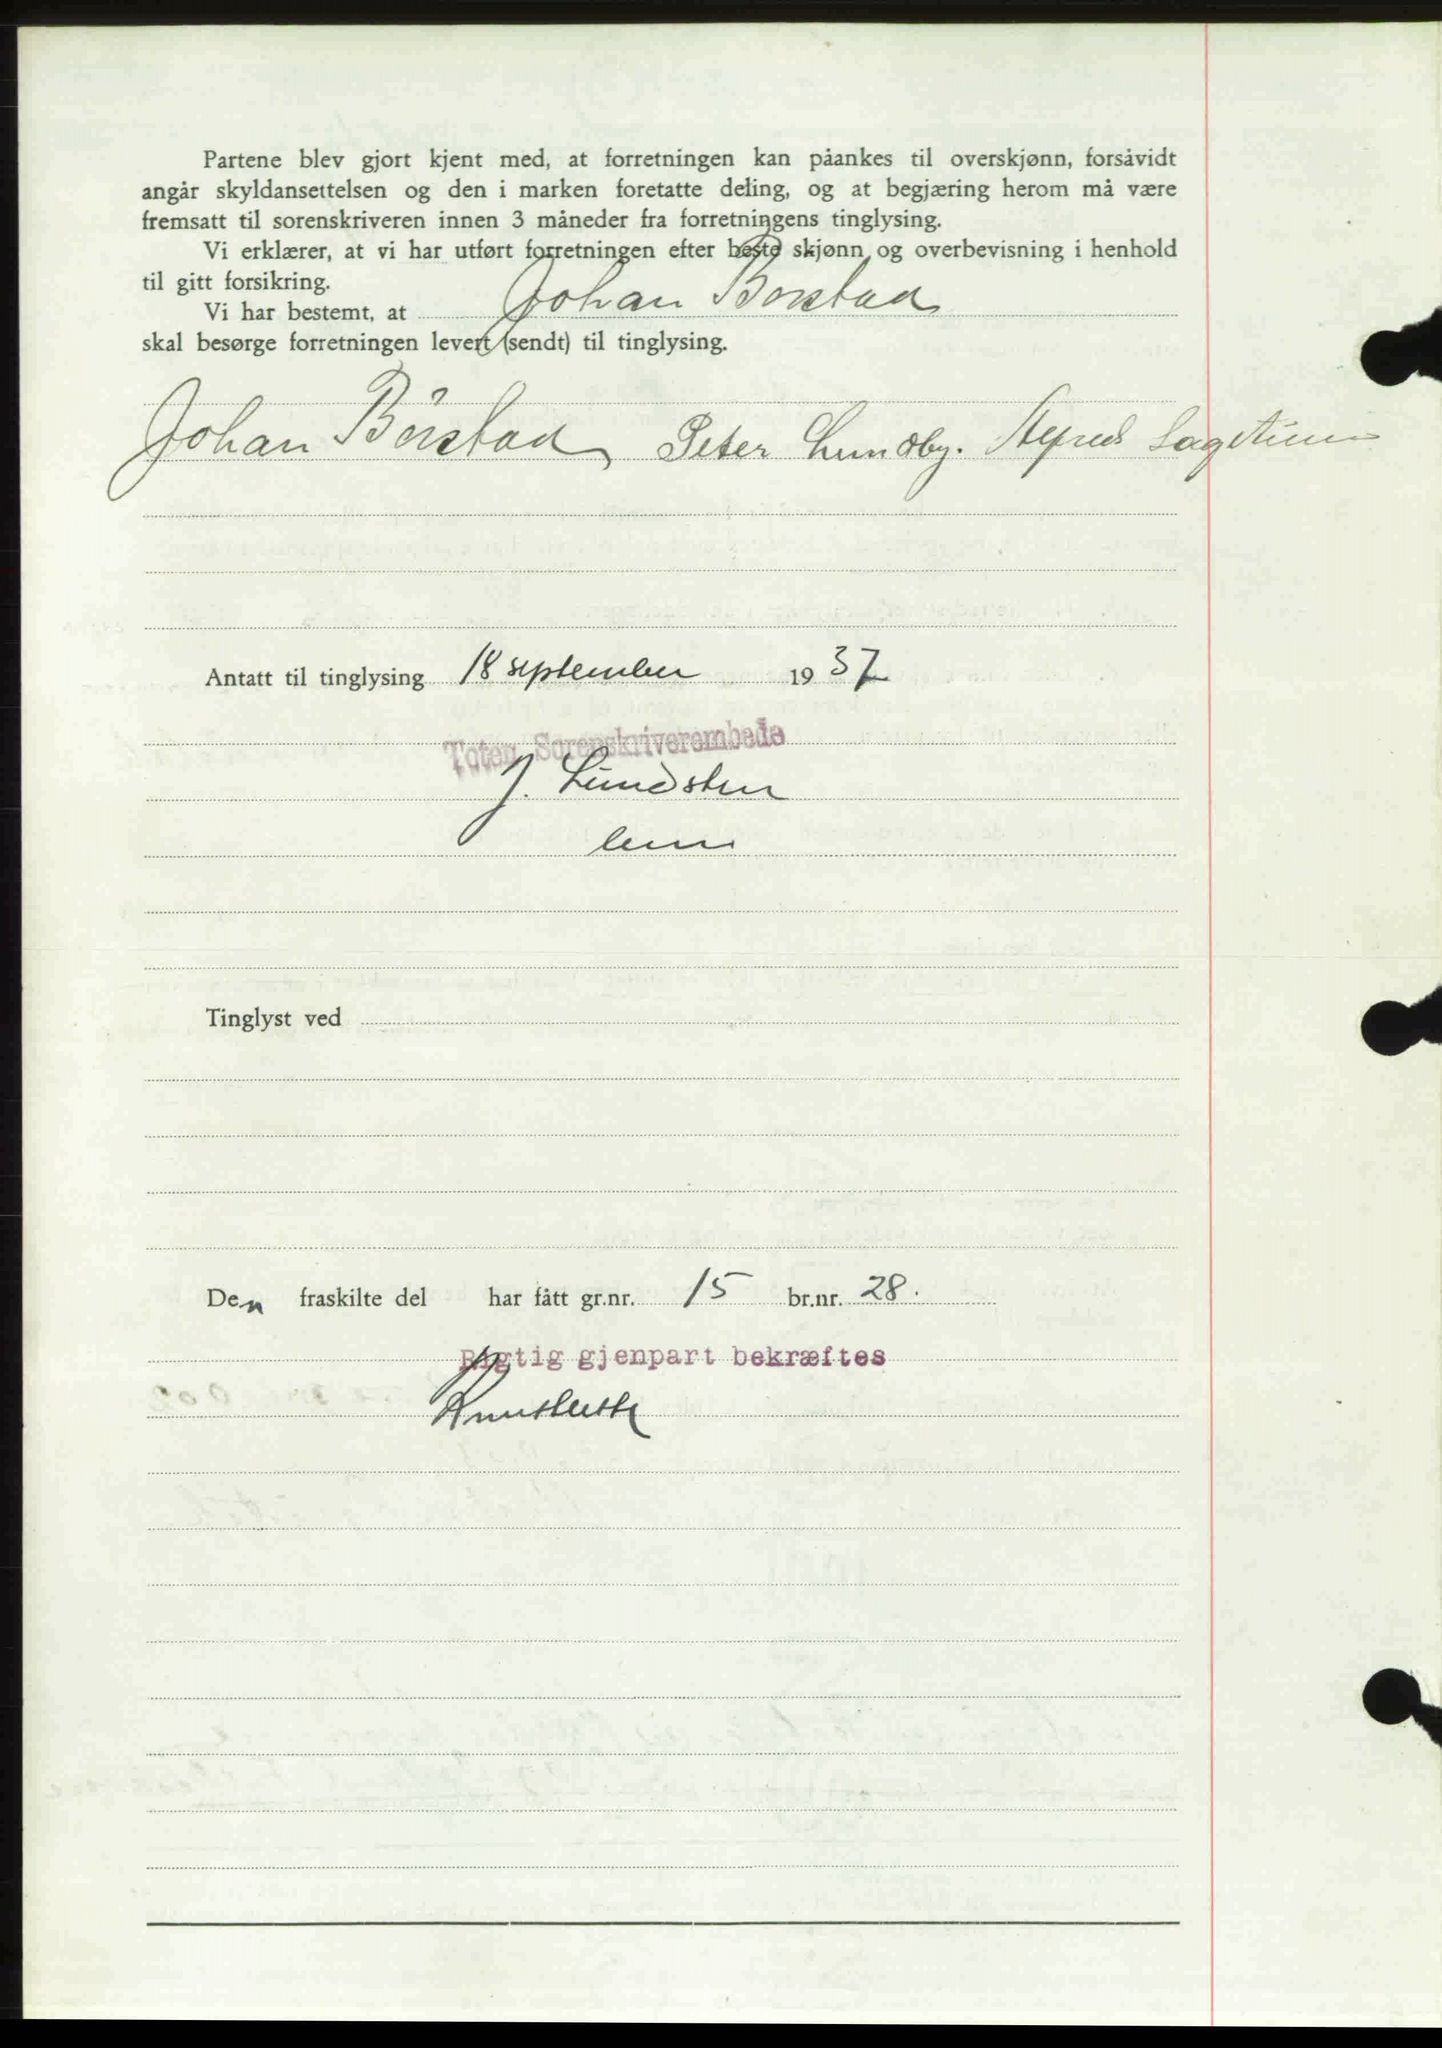 Partene blev gjort kjent med, at forretningen kan påankes til overskjønn, forsåvidt
angår skyldansettelsen og den i marken foretatte deling, og at begjæring herom må være
fremsatt til sorenskriveren innen 3 måneder fra forretningens tinglysing.
Vi erklærer, at vi har utført forretningen efter beste skjønn og overbevisning i henhold
til gitt forsikring.
Vi har bestemt, at Johan Børstad
skal besørge forretningen levert (sendt) til tinglysing.
Johan Børstad Peter Lundby.
Antatt til tinglysing 18 september 1937
Toten Sorenskriverembede
J. Lundsten
Tinglyst ved
Den fraskilte del har fått gr.nr. 15 br.nr. 28.
Rigtig gjenpart bekræftes